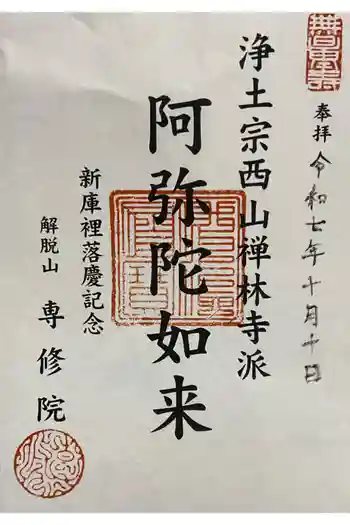 無量壽
奉拝 令和七年十月十日
浄土宗西山禅林寺派
阿弥陀如来
新庫裡落慶記念
解脱山 専修院